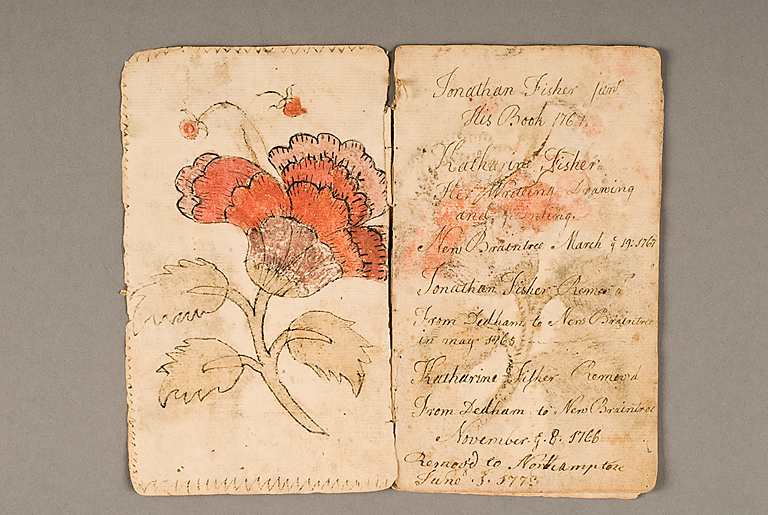 Jonathan Fisher junr
His Book 1767
Katharine Fisher
Her Writing Drawing
and Painting.
New Braintree March ye 19: 1767
Jonathan Fisher Remov'd
From Dedham to New Braintree
in may 1765
Katharine Fisher Remov'd
From Dedham to New Braintree
November ye 8. 1766
Remov'd to Northampton
June 3. 1773